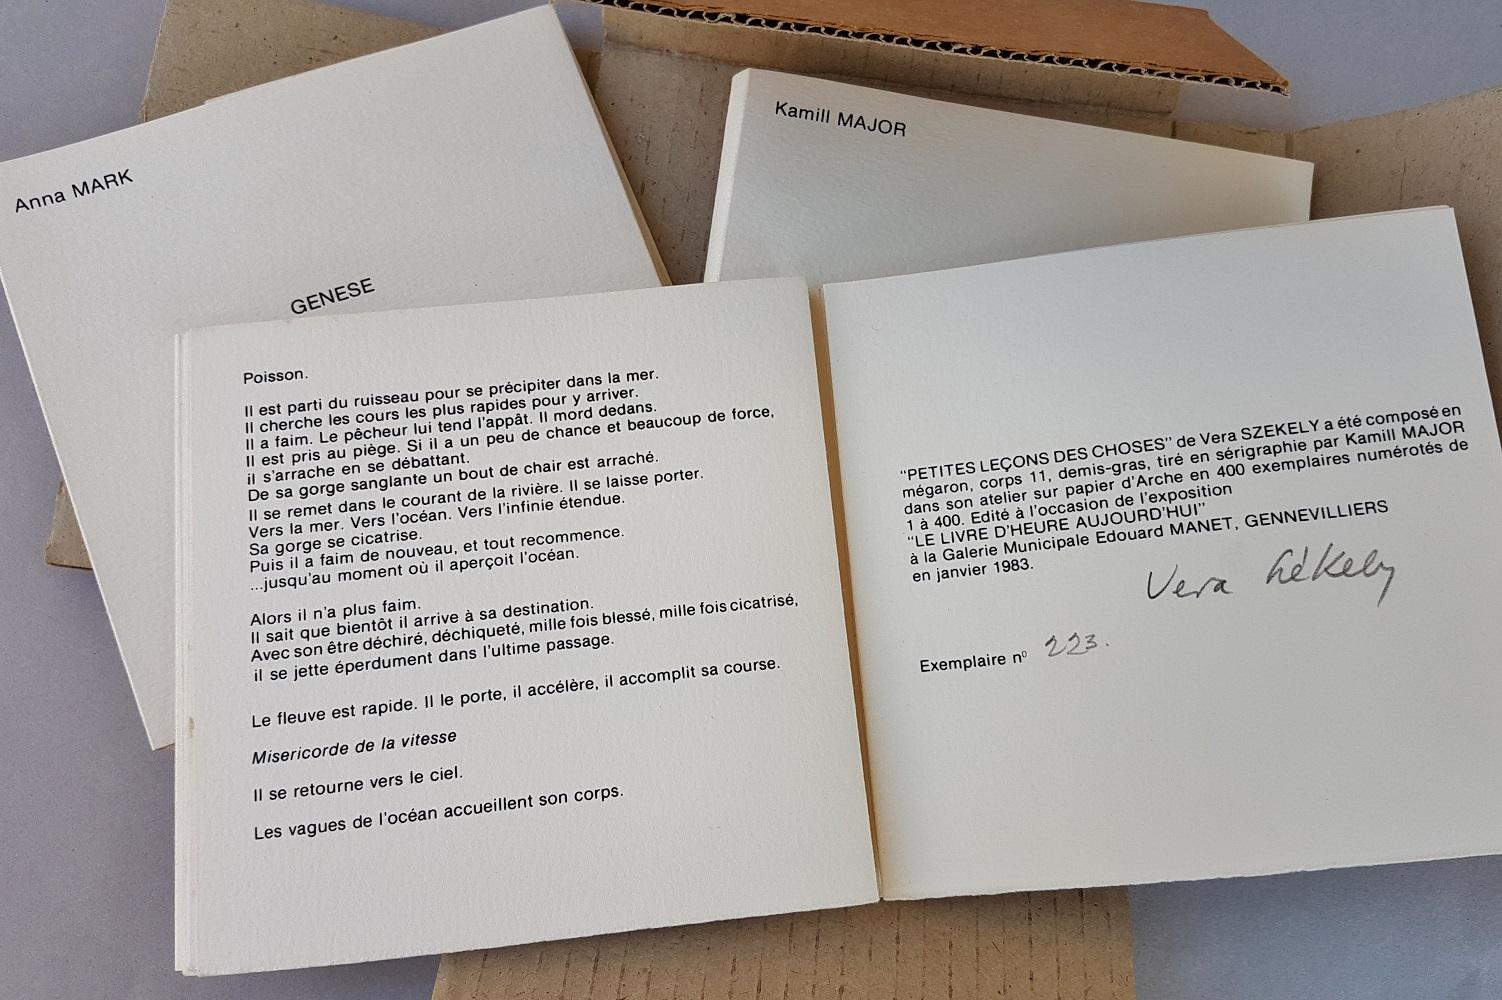 Anna MARK
GENESE
Kamill MAJOR
Poisson.
Il est parti du ruisseau pour se précipiter dans la mer.
Il cherche les cours les plus rapides pour y arriver.
Il a faim. Le pêcheur lui tend l'appât. Il mord dedans.
Il est pris au piège. Si il a un peu de chance et beaucoup de force,
il s'arrache en se débattant.
De sa gorge sanglante un bout de chair est arraché.
Il se remet dans le courant de la rivière. Il se laisse porter.
Vers la mer. Vers l'océan. Vers l'infinie étendue.
Sa gorge se cicatrise.
Puis il a faim de nouveau, et tout recommence.
...jusqu'au moment où il aperçoit l'océan.
Alors il n'a plus faim.
Il sait que bientôt il arrive à sa destination.
Avec son être déchiré, déchiqueté, mille fois blessé, mille fois cicatrisé,
il se jette éperdument dans l'ultime passage.
Le fleuve est rapide. Il le porte, il accélère, il accomplit sa course.
Misericorde de la vitesse
Il se retourne vers le ciel.
Les vagues de l'océan accueillent son corps.
"PETITES LEÇONS DES CHOSES" de Vera SZEKELY a été composé en
mégaron, corps 11, demis-gras, tiré en sérigraphie par Kamill MAJOR
dans son atelier sur papier d'Arche en 400 exemplaires numérotés de
1 à 400. Edité à l'occasion de l'exposition
"LE LIVRE D'HEURE AUJOURD'HUI"
à la Galerie Municipale Edouard MANET, GENNEVILLIERS
en janvier 1983.
Vera Székely
Exemplaire nº 223.